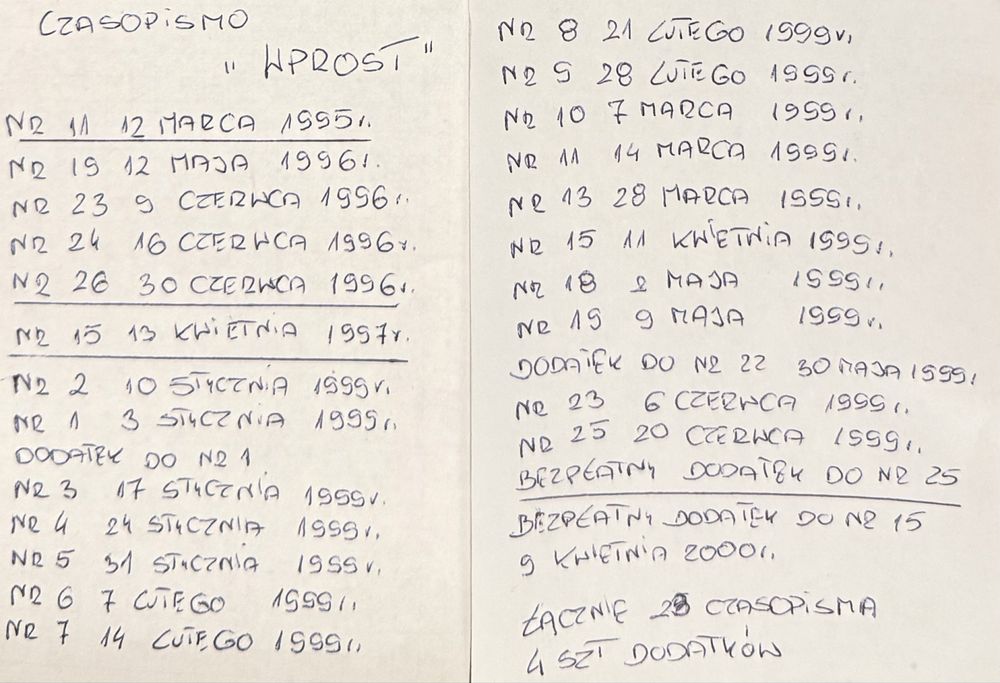 CZASOPISMO
"WPROST"
NR 11 12 MARCA 1995r.
NR 19 12 MAJA 1996r.
NR 23 9 CZERWCA 1996r.
NR 24 16 CZERWCA 1996r.
NR 26 30 CZERWCA 1996r.
NR 15 13 KWIETNIA 1997r.
NR 2 10 STYCZNIA 1999r.
NR 1 3 STYCZNIA 1999r.
DODATEK DO NR 1
NR 3 17 STYCZNIA 1999r.
NR 4 24 STYCZNIA 1999r.
NR 5 31 STYCZNIA 1999r.
NR 6 7 LUTEGO 1999r.
NR 7 14 LUTEGO 1999r.
NR 8 21 LUTEGO 1999r.
NR 9 28 LUTEGO 1999r.
NR 10 7 MARCA 1999r.
NR 11 14 MARCA 1999r.
NR 13 28 MARCA 1999r.
NR 15 11 KWIETNIA 1999r.
NR 18 2 MAJA 1999r.
NR 19 9 MAJA 1999r.
DODATEK DO NR 22 30 MAJA 1999r
NR 23 6 CZERWCA 1999r.
NR 25 20 CZERWCA 1999r.
BEZPŁATNY DODATEK DO NR 25
BEZPŁATNY DODATEK DO NR 15
9 KWIETNIA 2000r.
ŁĄCZNIE CZASOPISMA
4 SZT DODATKÓW